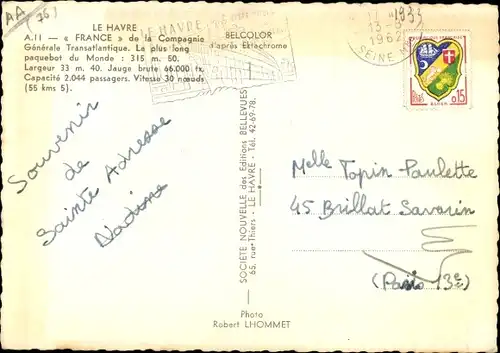 LE HAVRE
A.11 - « FRANCE » de la Compagnie
Générale Transatlantique. Le plus long
paquebot du Monde : 315 m. 50.
Largeur 33 m. 40. Jauge brute 66.000 tx.
Capacité 2.044 passagers. Vitesse 30 nœuds
(55 kms 5).
BELCOLOR
d'après Ektachrome
LE HAVRE
1962
SEINE
0,15
Souvenir
de
Sainte Adresse
Nadine
SOCIETE NOUVELLE des Editions BELLEVUES
65, rue-Thiers - LE HAVRE - Tél. 42-69-78.
Melle Topin Paulette
45 Brillat Savarin
(Paris 13e)
Photo
Robert LHOMMET